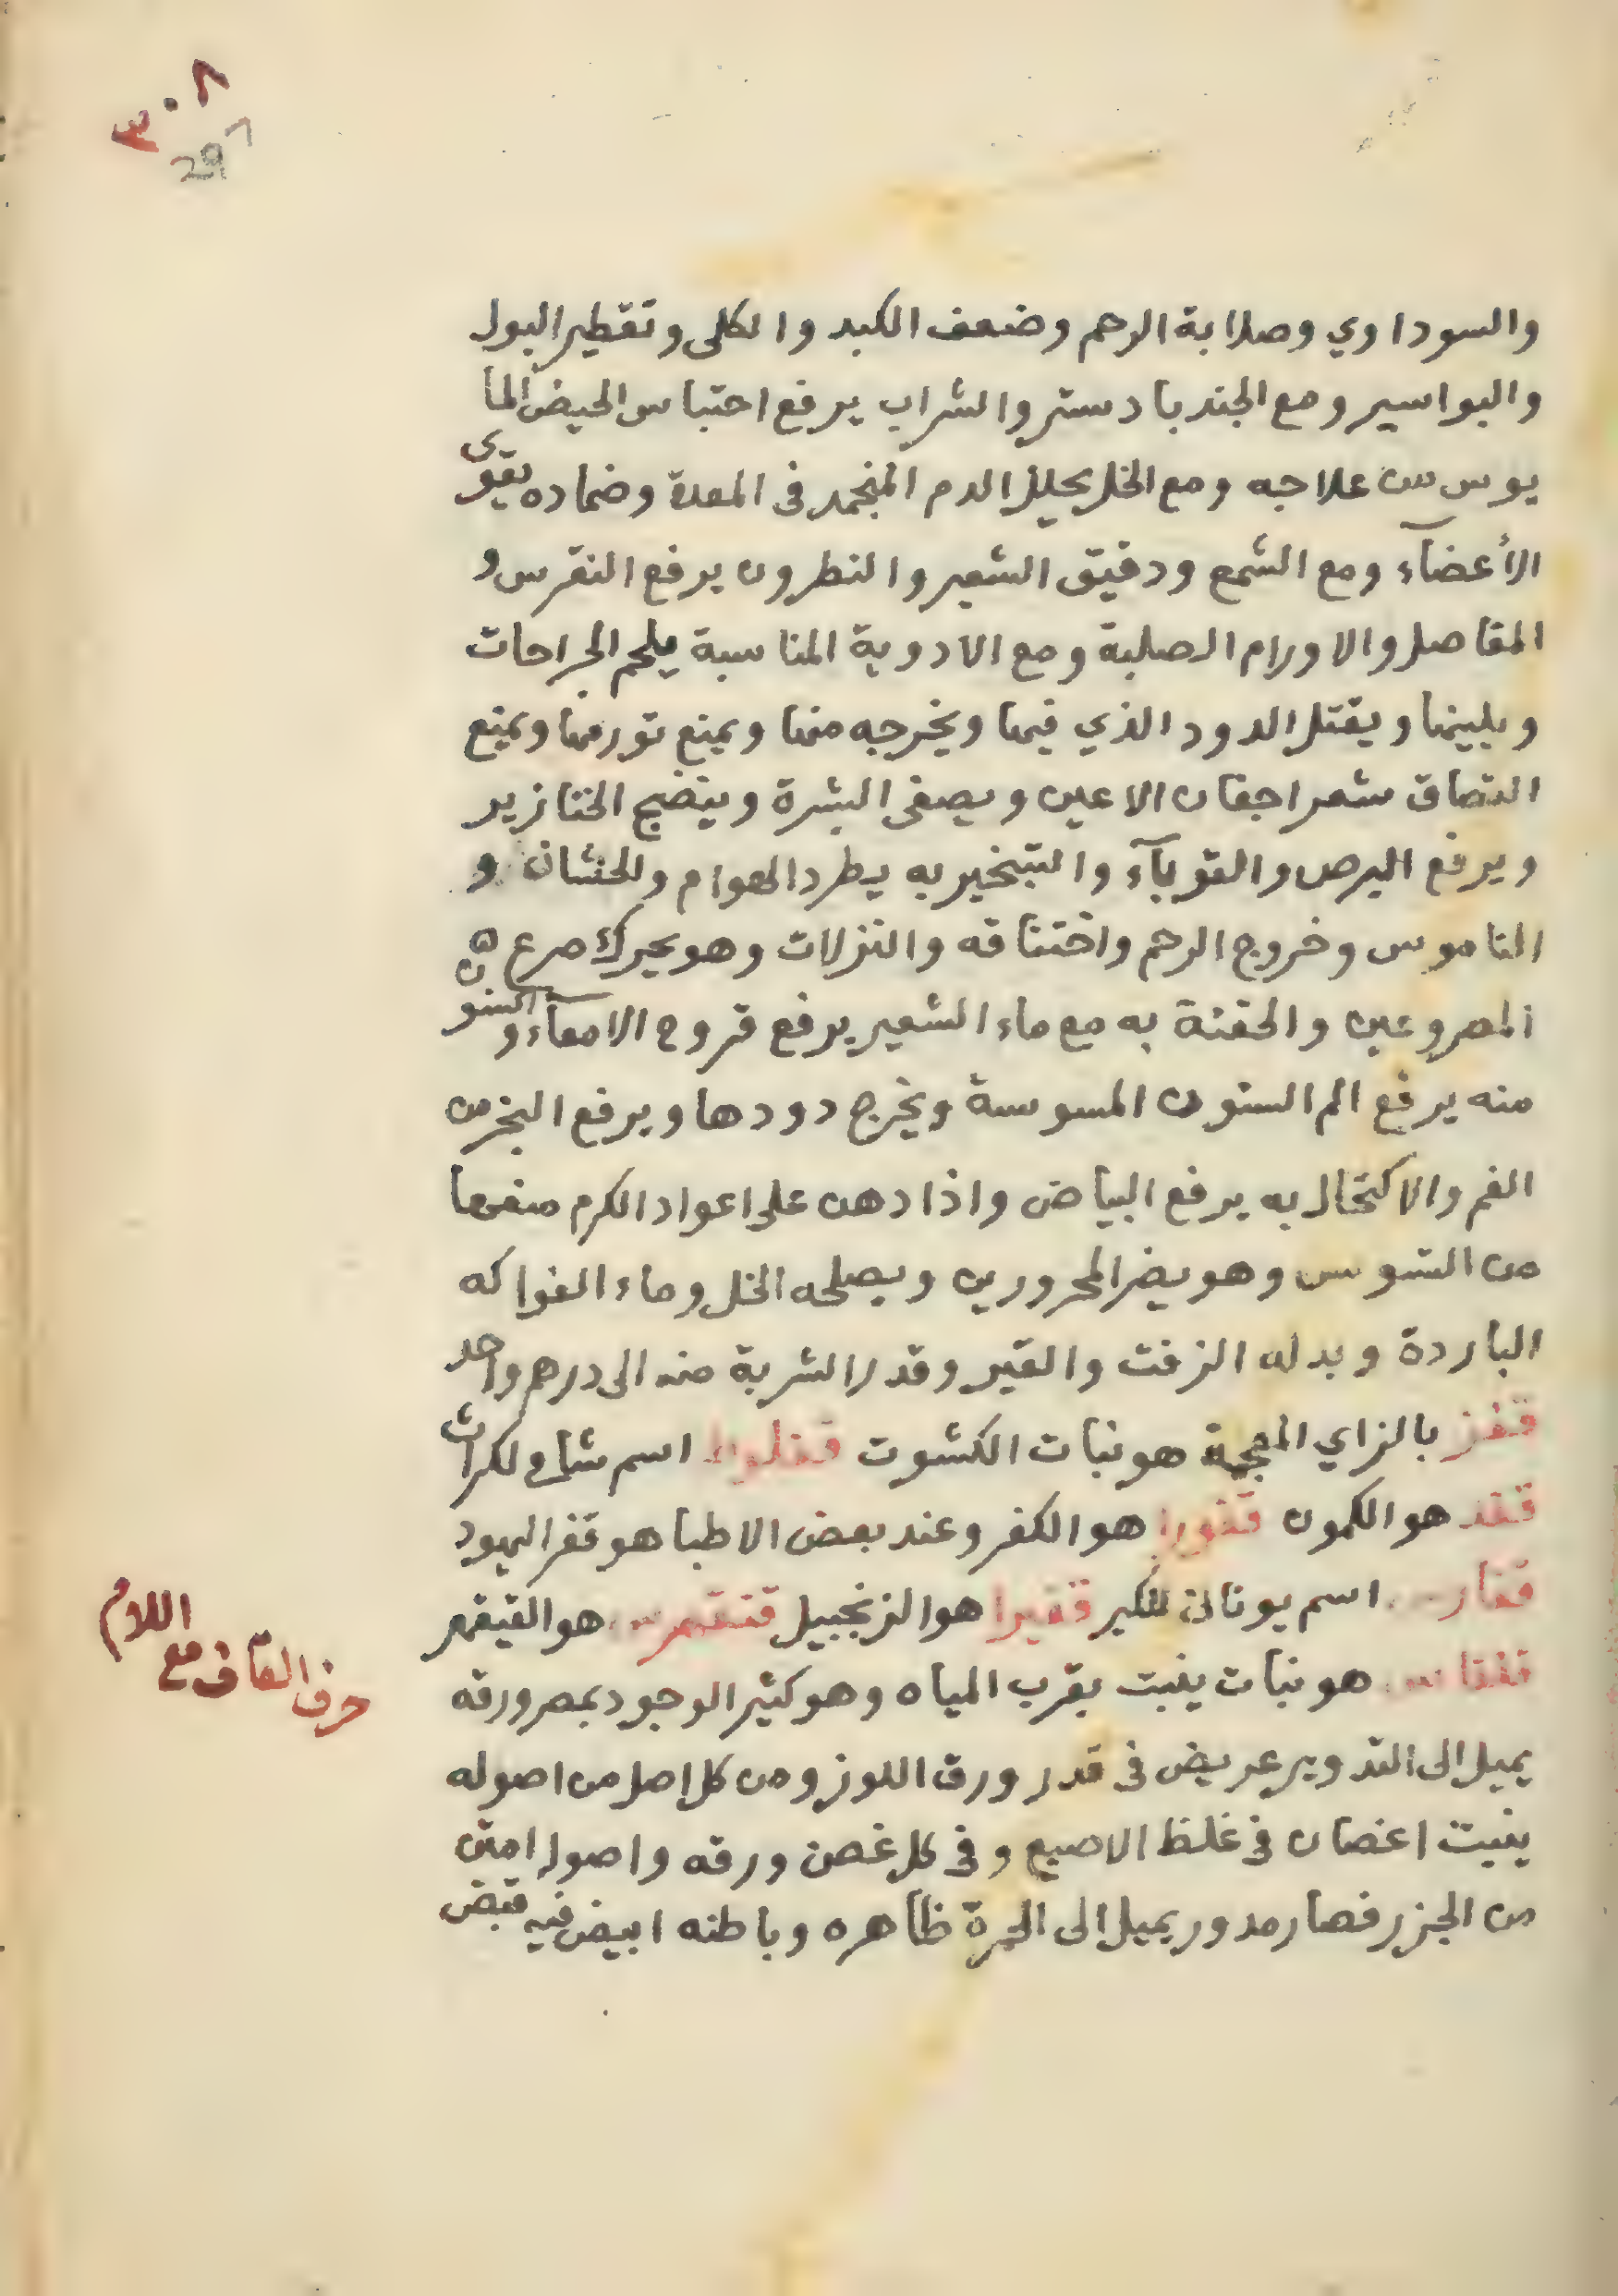 ٣٠٨
29
والسوداوي وصلابة الرحم وضعف الكبد والكلى وتقطير البول
والبواسير ومع الجندبادستر والشراب يرفع احتباس الحيض الما
يوس من علاجه ومع الخل يحلل الدم المنجمد فى المعدة وضماده يقوى
الأعضآء ومع الشمع ودقيق الشعير والنطرون يرفع النقرس و
المفاصل والاورام الصلبة ومع الادوية المناسبة يلحم الجراحات
ويلينها ويقتل الدود الذي فيها ويخرجه منها ويمنع تورمها ويمنع
التصاق شعر اجفان الاعين ويصفى البشرة وينضج الخنازير
ويرفع البرص والقوبآء والتبخير به يطرد الهوام والخشان و
الناموس وخروج الرحم واختناقه والنزلات وهو يحرك صرع
المصروعين والحقنة به مع ماء الشعير يرفع قروح الامعآء والسنون
منه يرفع الم السنون المسوسة ويخرج دودها ويرفع البخر من
الفم والاكتحال به يرفع البياض واذا دهن على اعواد الكرم منعها
من التسوس وهو يضر المحرورين ويصلحه الخل وماء الفواكه
الباردة وبدله الزفت والقير وقدر الشربة منه الى درهم واحد
قفز بالزاي المعجمة هو نبات الكشوت قفلوط اسم شامى لكراث
قفد هو الكمون قفورا هو الكفر وعند بعض الاطبا هو قفر اليهود
قفارس اسم يونانى للكبر قفيرا هو الزنجبيل قفقهرس هو القيقهر
قلقاس هو نبات ينبت بقرب المياه وهو كثير الوجود بمصر ورقه
يميل الى التدوير عريض فى قدر ورق اللوز ومن كل اصل من اصوله
ينبت اغصان فى غلظ الاصبع وفى كل غصن ورقه واصوله امتن
من الجزر فصار مدور يميل الى الحمرة ظاهره وباطنه ابيض فيه قبض
حرف القاف مع اللام